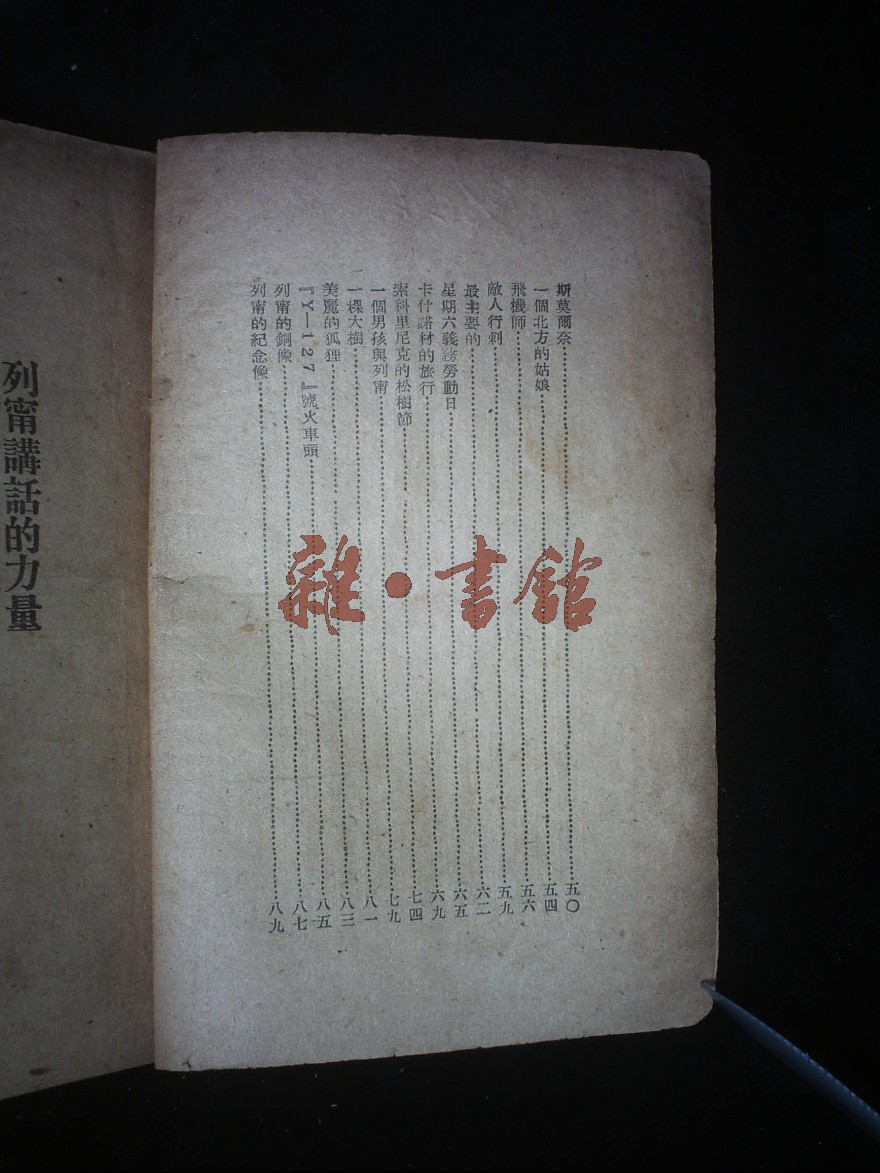 斯莫爾奈⋯⋯五〇
一個北方的姑娘⋯⋯五四
飛機師⋯⋯五六
敵人行刺⋯⋯五九
最主要的⋯⋯六二
星期六義務勞動日⋯⋯六五
卡什諾村的旅行⋯⋯六九
索科里尼克的松樹節⋯⋯七四
一個男孩與列甯⋯⋯七九
一棵大樹⋯⋯八一
美麗的狐狸⋯⋯八三
『Y—127』號火車頭⋯⋯八五
列甯的銅像⋯⋯八七
列甯的紀念像⋯⋯八九
列甯講話的力量
雜·書館